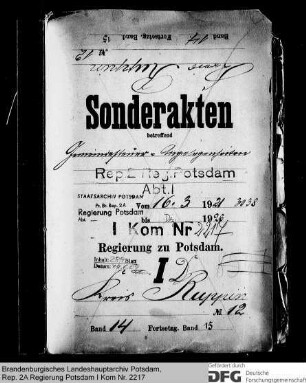 Band 14 Fortsetzg. Band 15
№ 12
Kreis Ruppin
Sonderakten
betreffend
Gemeindesteuer-Angelegenheiten
Rep. 2 Reg. Potsdam
Abt. I
STAATSARCHIV POTSDAM
Pr. Br. Rep. 2A
Vom 16.3 1921
Regierung Potsdam
bis 1926
I Kom Nr 2217
Regierung zu Potsdam.
I
Kreis Ruppin
№ 12
Band 14 Fortsetzg. Band 15
Brandenburgisches Landeshauptarchiv Potsdam,
Rep. 2A Regierung Potsdam I Kom Nr. 2217
Gefördert durch
DFG Deutsche
Forschungsgemeinschaft